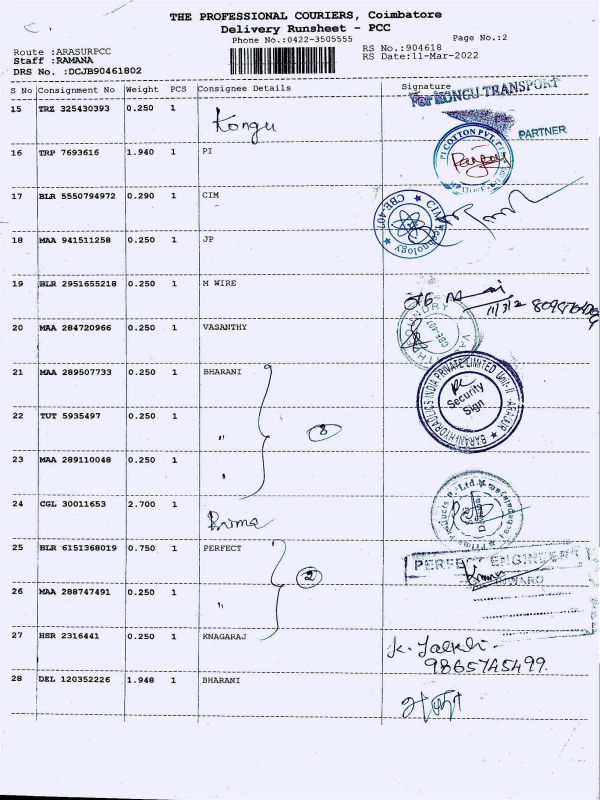 THE PROFESSIONAL COURIERS, Coimbatore
Delivery Runsheet - PCC
Phone No.:0422-3505555 Page No.:2
Route :ARASURPCC RS No.:904618
Staff :RAMANA RS Date:11-Mar-2022
DRS No. :DCJB90461802
S No Consignment No Weight PCS Consignee Details Signature
For KONGU TRANSPORT
15 TRZ 325430393 0.250 1 Kongu
PARTNER
16 TRP 7693616 1.940 1 PI
PI COTTON PVT. LTD.
17 BLR 5550794972 0.290 1 CIM
CIM Technology CBE-407
18 MAA 941511258 0.250 1 JP
19 BLR 2951655218 0.250 1 M WIRE
11/3/2
20 MAA 284720966 0.250 1 VASANTHY
CBE-407
21 MAA 289507733 0.250 1 BHARANI
BARANI HYDRAULICS INDIA PRIVATE LIMITED Unit-II - ARASUR
Security
Sign
22 TUT 5935497 0.250 1 " 3
23 MAA 289110048 0.250 1 "
24 CGL 30011653 2.700 1 Prime
25 BLR 6151368019 0.750 1 PERFECT 2
PERFECT ENGINEERS
26 MAA 288747491 0.250 1 "
27 HSR 2316441 0.250 1 KNAGARAJ
9865745499
28 DEL 120352226 1.948 1 BHARANI